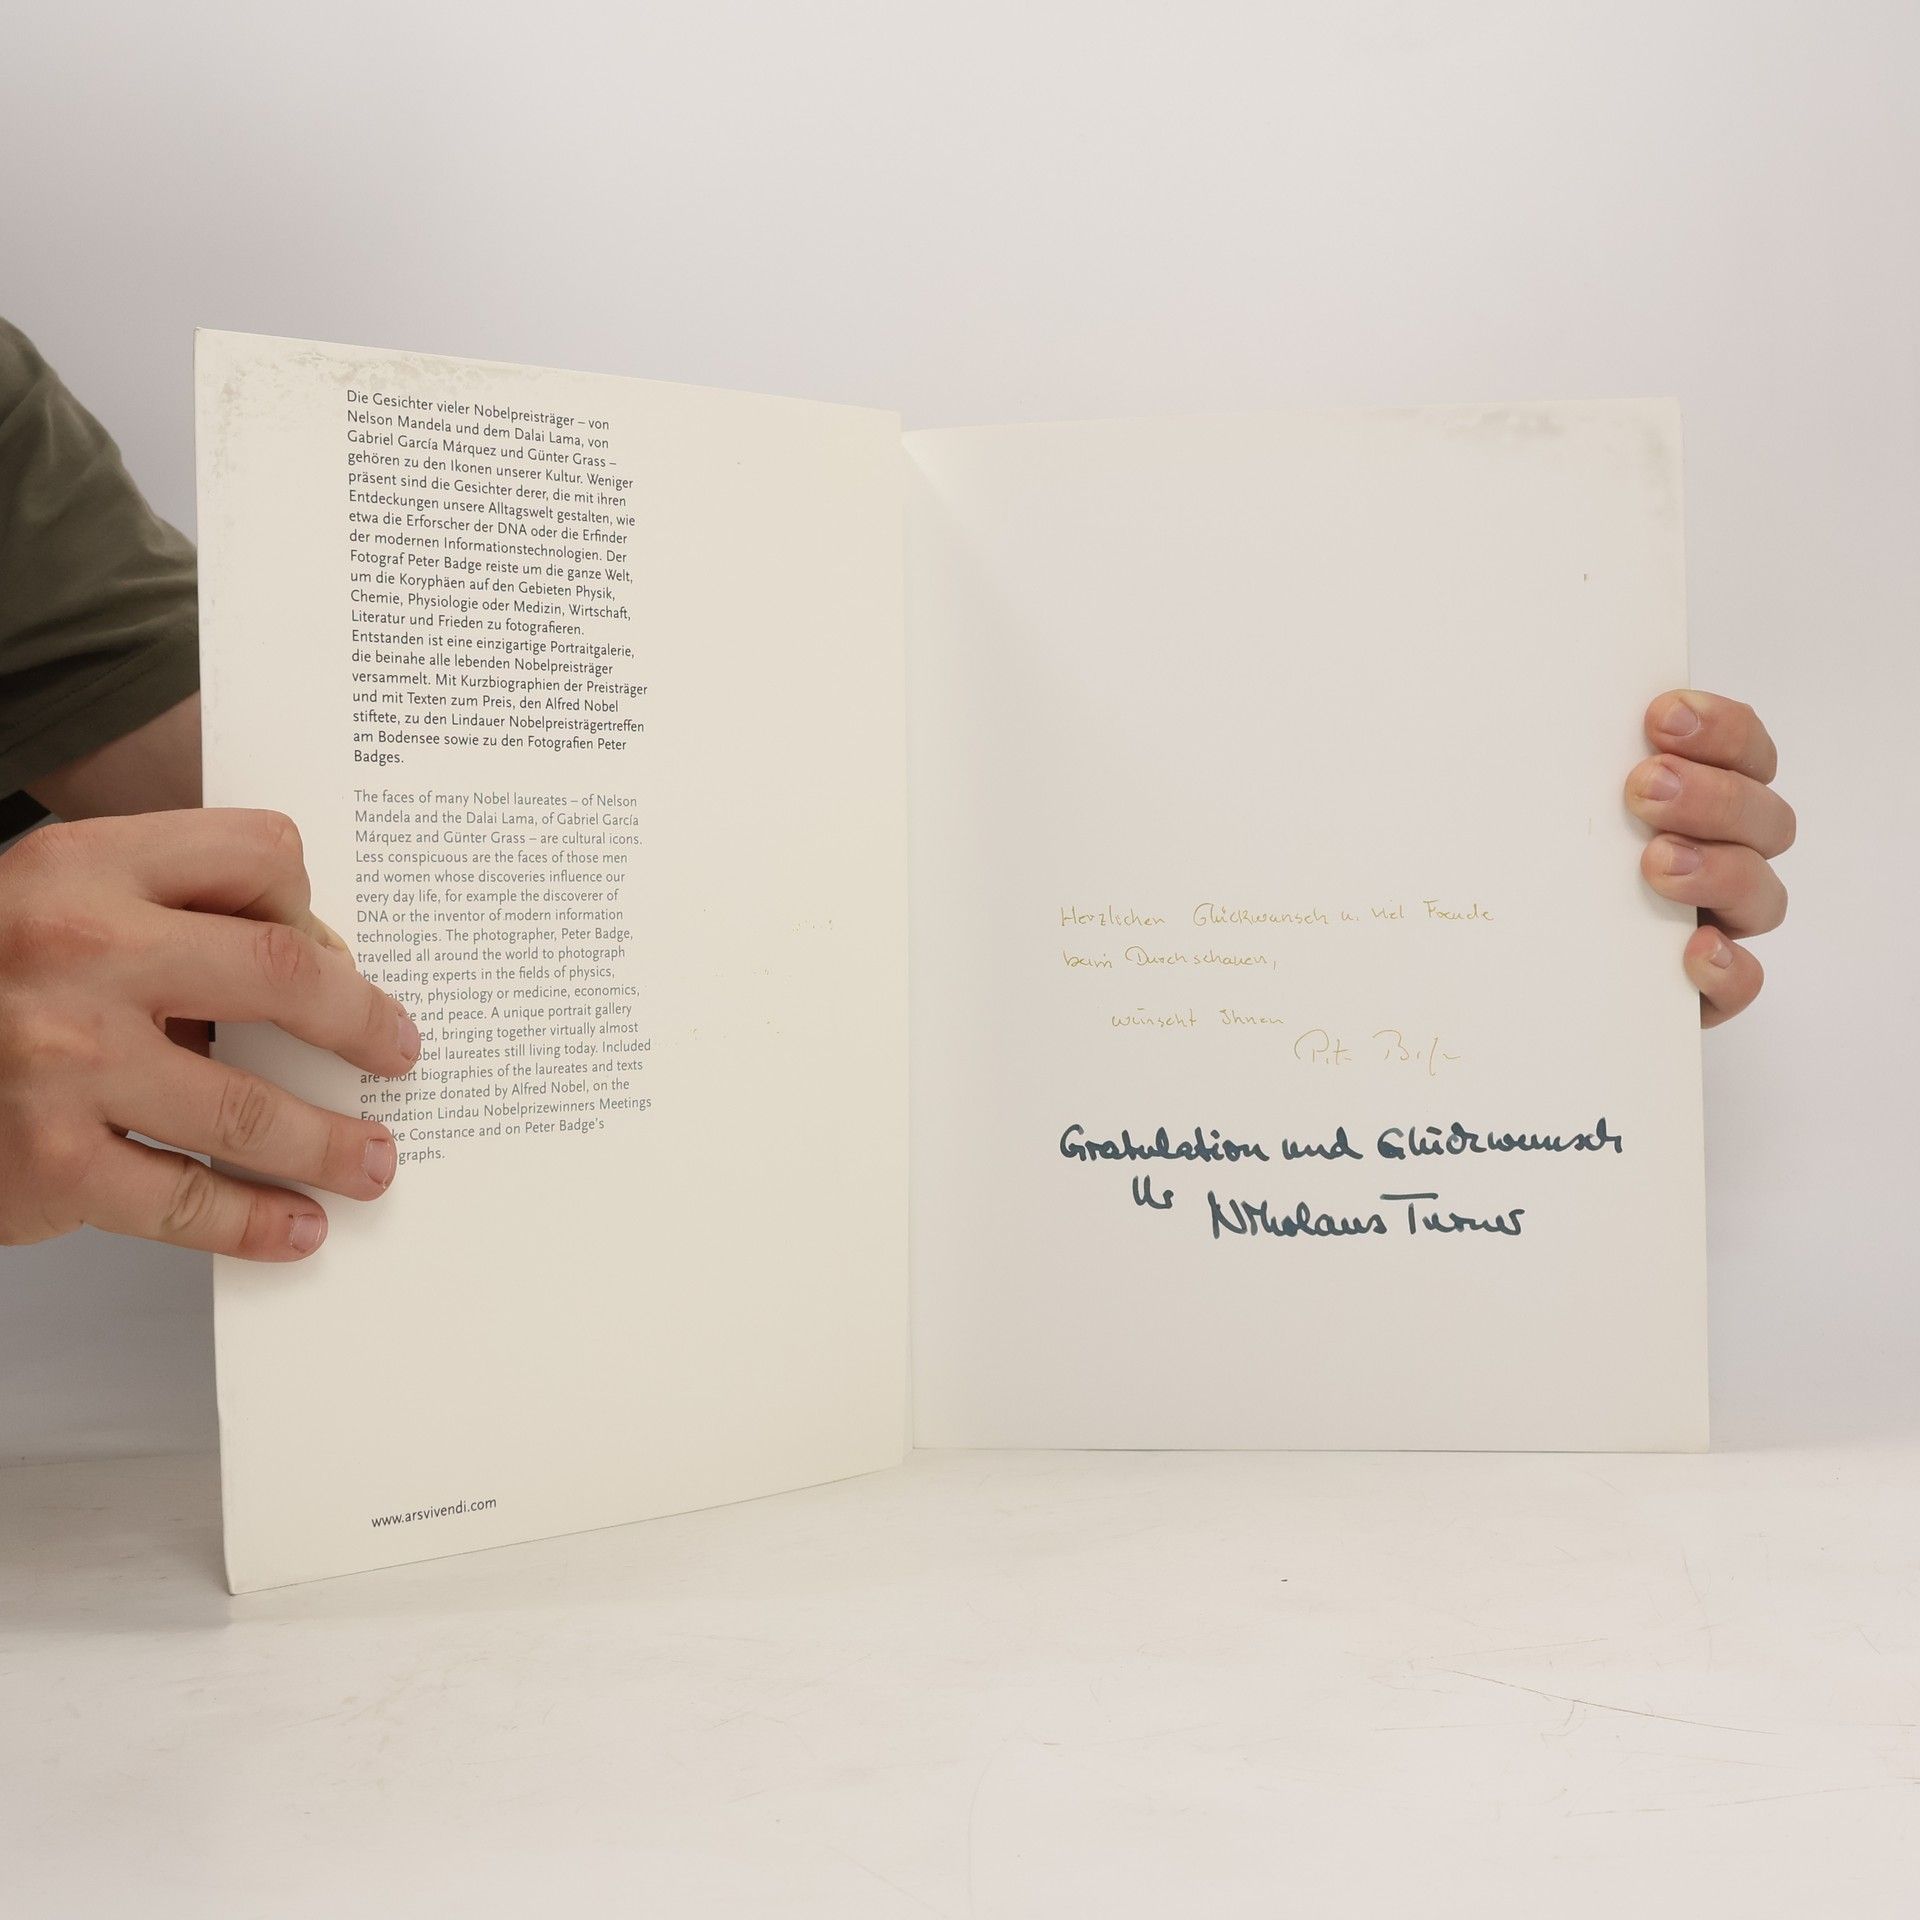 Die Gesichter vieler Nobelpreisträger – von
Nelson Mandela und dem Dalai Lama, von
Gabriel García Márquez und Günter Grass –
gehören zu den Ikonen unserer Kultur. Weniger
präsent sind die Gesichter derer, die mit ihren
Entdeckungen unsere Alltagswelt gestalten, wie
etwa die Erforscher der DNA oder die Erfinder
der modernen Informationstechnologien. Der
Fotograf Peter Badge reiste um die ganze Welt,
um die Koryphäen auf den Gebieten Physik,
Chemie, Physiologie oder Medizin, Wirtschaft,
Literatur und Frieden zu fotografieren.
Entstanden ist eine einzigartige Portraitgalerie,
die beinahe alle lebenden Nobelpreisträger
versammelt. Mit Kurzbiographien der Preisträger
und mit Texten zum Preis, den Alfred Nobel
stiftete, zu den Lindauer Nobelpreisträgertreffen
am Bodensee sowie zu den Fotografien Peter
Badges.
The faces of many Nobel laureates – of Nelson
Mandela and the Dalai Lama, of Gabriel García
Márquez and Günter Grass – are cultural icons.
Less conspicuous are the faces of those men
and women whose discoveries influence our
every day life, for example the discoverer of
DNA or the inventor of modern information
technologies. The photographer, Peter Badge,
travelled all around the world to photograph
the leading experts in the fields of physics,
physiology or medicine, economics,
and peace. A unique portrait gallery
bringing together virtually almost
laureates still living today. Included
are short biographies of the laureates and texts
on the prize donated by Alfred Nobel, on the
Foundation Lindau Nobelprizewinners Meetings
Constance and on Peter Badge's
www.arsvivendi.com
Herzlichen Glückwunsch u. viel Freude
beim Durchschauen,
wünscht Ihnen
Gratulation und Glückwunsch
Ihr Nikolaus Turner